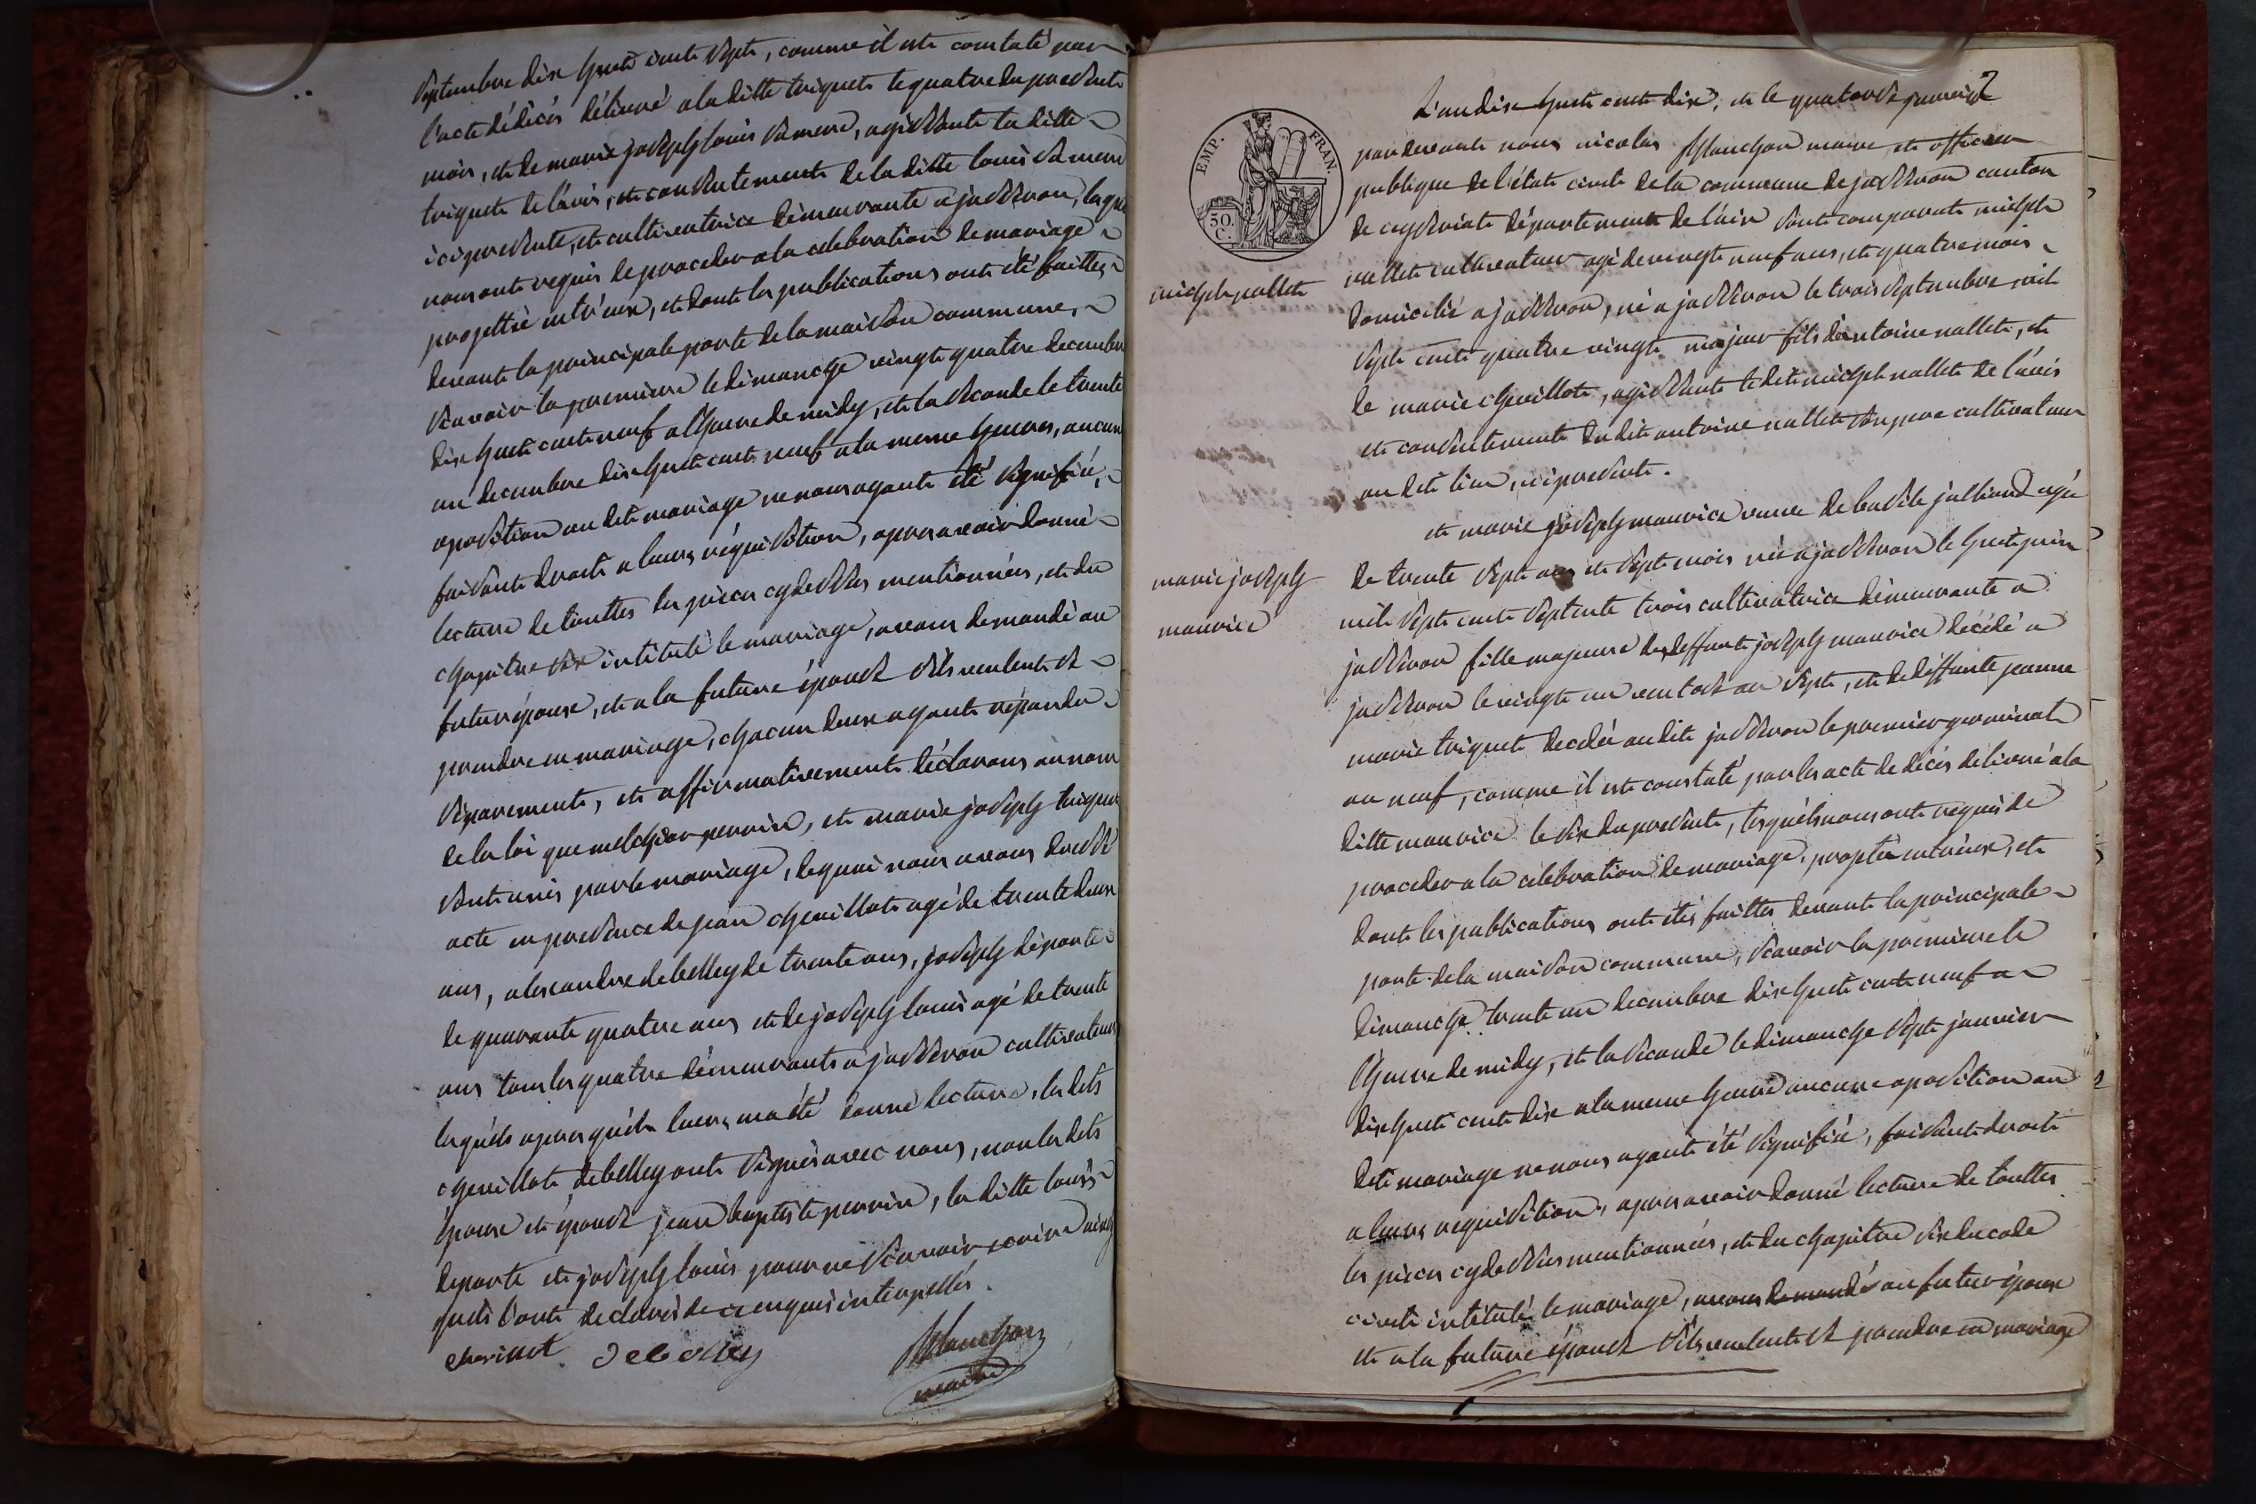 septembre dix huit cent sept, comme il est constaté par
l'acte dédécés délivré a la ditte triquet le quatre du présent
mois, et de marie joseph louis sa mere, agissante la ditte
triquet de l'avis, et consentement de la ditte louis sa mere
ici présente, et cultivatrice demeurante a jasseron, lesquels
nous ont requis de proceder a la celebration de mariage
projetté entr'eux, et dont les publications ont été faittes
devant la principale porte de la maison commune,
sçavoir la premiere le dimanche vingt quatre decembre
dix huit cent neuf a l'heure de midy, et la seconde le trente
un decembre dix huit cent neuf a la meme heure, aucune
oposition au dit mariage ne nous ayant été signifiée,
faisant droit a leurs réquisition, apres avoir donné
lecture de touttes les pieces cy dessus mentionnées, et du
chapitre six intitulé le mariage, avons demandé au
futur époux, et a la future épouse s'ils veulent se
prendre en mariage, chacun deux ayant répondu
séparement, et affirmativement déclarons au nom
de la loi que melchior perrin, et marie joseph triquet
sont unis par le mariage, de quoi nous avons dressé
acte en présence de jean chevillot agé de trente deux
ans, alexandre debelley de trente ans, joseph déporte
de quarante quatre ans et de joseph louis agé de trente
ans tous les quatre démeurants a jasseron cultivateurs
lesquels apres qu'il leurs en a été donné lecture, les dits
chevillot, debelley ont signés avec nous, non les dits
époux et épouse jean baptiste perrin, la ditte louis
deporte et joseph louis pour ne sçavoir ecrire ainsy
qu'ils l'ont declarés de ce enquis interpellés.
chevillot debelley Blanchon
maire
2
L'an dix huit cent dix, et le quatorze janvier
EMP. FRAN.
50 C.
par devant nous nicolas Blanchon maire et officier
publique de l'état civil de la commune de jasseron canton
de ceyzeriat département de l'ain sont comparut michel
nallet cultivateur agé de vingt neuf ans, et quatre mois
michel nallet
domicilié a jasseron, né a jasseron le trois septembre mil
sept cent quatre vingt majeur fils d'antoine nallet, et
de marie chevillot, agissant le dit michel nallet de l'avis
et consentement du dit antoine nallet son pere cultivateur
au dit lieu, ici présent.
et marie joseph maurice veuve de basile julliard agée
de trente sept ans et sept mois née a jasseron le huit juin
marie joseph
maurice
mil sept cent septente trois cultivatrice démeurante a
jasseron fille majeure de deffunt joseph maurice décédé a
jasseron le vingt un ventose an sept, et de déffunte jeanne
marie triquet decedée au dit jasseron le premier germinal
an neuf, comme il est constaté par les acte de décés délivré a la
ditte maurice le six du présent, lesquels nous ont requis de
proceder a la célébration de mariage, projetté entr'eux, et
dont les publications ont étés faittes devant la principale
porte de la maison commune, sçavoir la premiere le
dimanche trente un decembre dix huit cent neuf a
l'heure de midy, et la seconde le dimanche sept janvier
dix huit cent dix a la meme heure aucune oposition au
dit mariage ne nous ayant été signifiée, faisant droit
a leurs requisition, apres avoir donné lecture de touttes
les pieces cy dessus mentionnées, et du chapitre six du code
civil intitulé le mariage, avons demandé au futur époux
et a la future épouse s'ils veulent se prendre en mariage